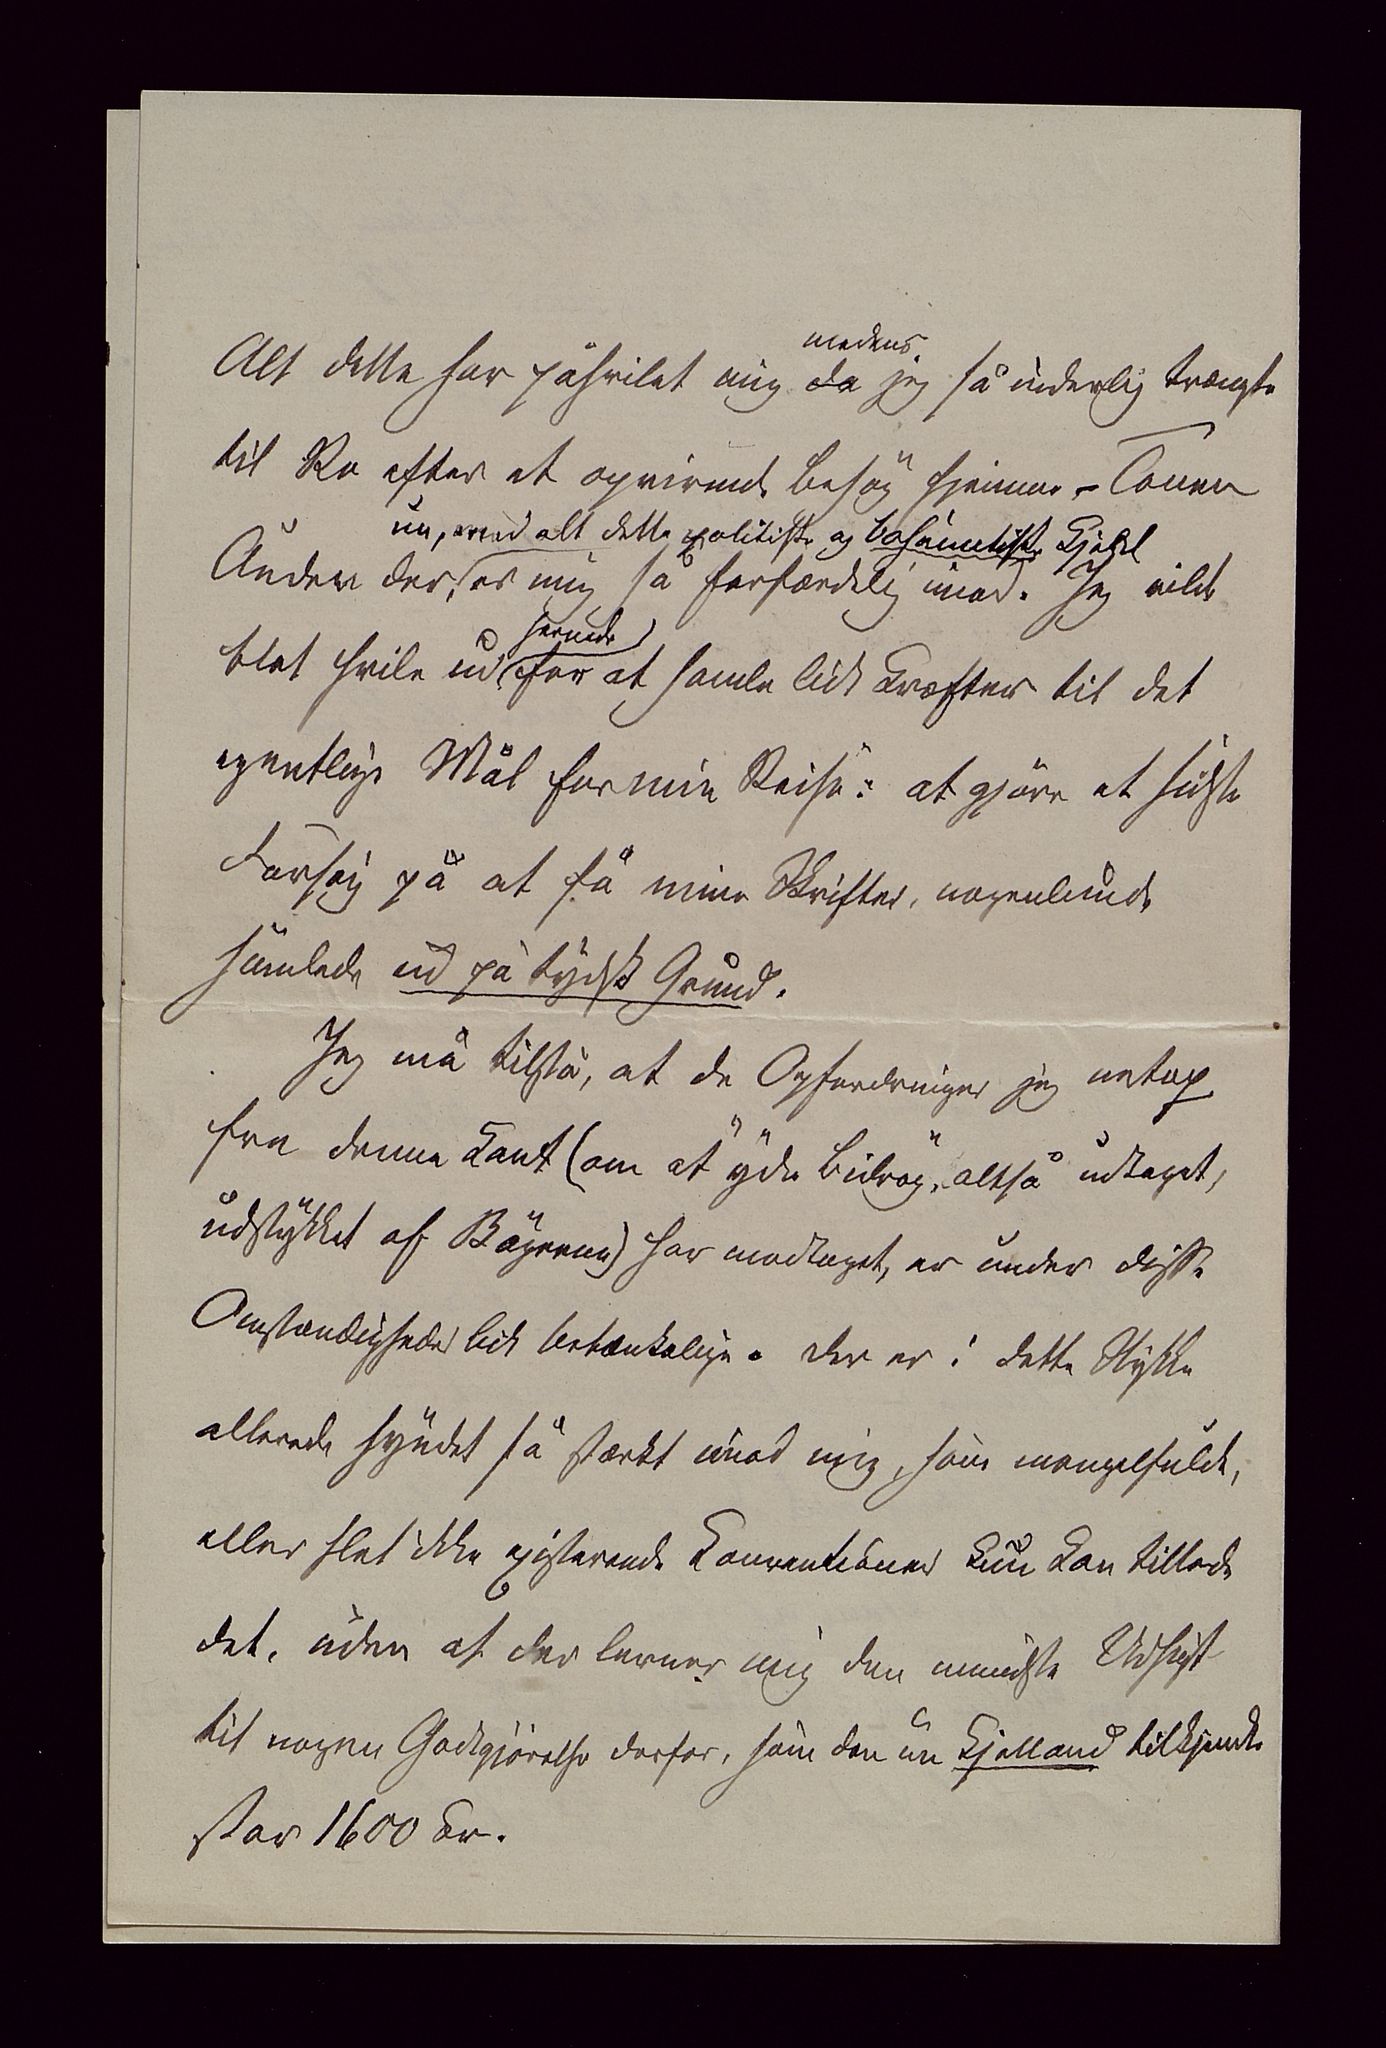 medens
Alt dette har påhvilet mig da jeg så inderlig trængte
til Ro efter et oprivende besøg hjemme – Tonen
nu, med alt dette politiske og bohêmetiske Kjekl
Anden der, er mig så forfærdelig imod. Jeg vilde
herinde
blot hvile ud for at samle lidt Kræfter til det
egentlige Mål for min Reise: at gjøre et sidste
Forsøg på at få mine Skrifter, nogenlunde
samlede ud på tydsk Grund.
Jeg må tilstå, at de Opfordringer jeg netop
fra denne Kant (om at "yde Bidrag", altså udtaget,
udstykket af Bøgerne) har modtaget, er under disse
Omstændigheder lidt betænkelige. Der er i dette Stykke
allerede syndet så stærkt imod mig, som mangelfulde,
eller slet ikke existerende Konventioner kun kan tillade
det, uden at der levnes mig den mindste Udsigt
til nogen Godtgjørelse derfor, som den nu Kjelland tilkjendte
stor 1600 Kr.